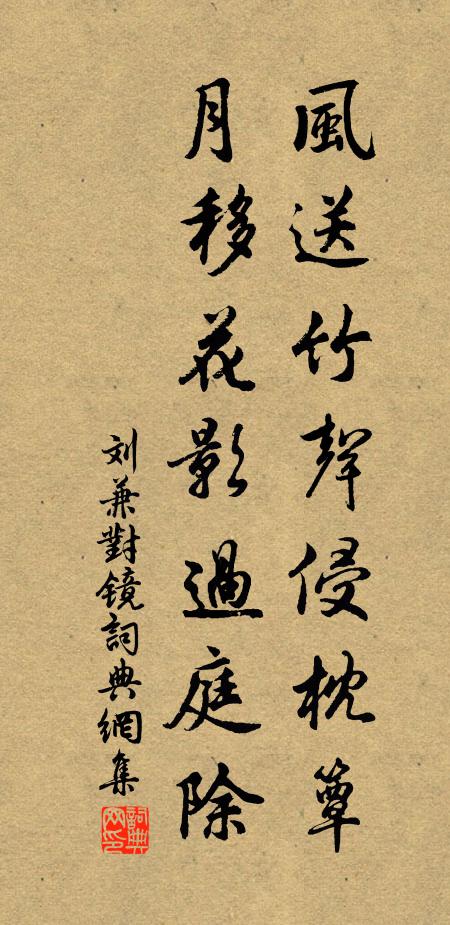 風送竹聲侵枕簟
月移花影過庭除
刘兼對镜詞典網集
詞典網印